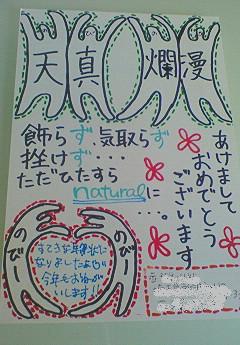 天真爛漫
飾らず気取らず
挫けず・・・・
ただひたすら
naturalに
・・・。
あけまして
おめでとう
ございます
のびー
のびー
すてきな年賀状に
なりましたよ
今年もお
いします!!